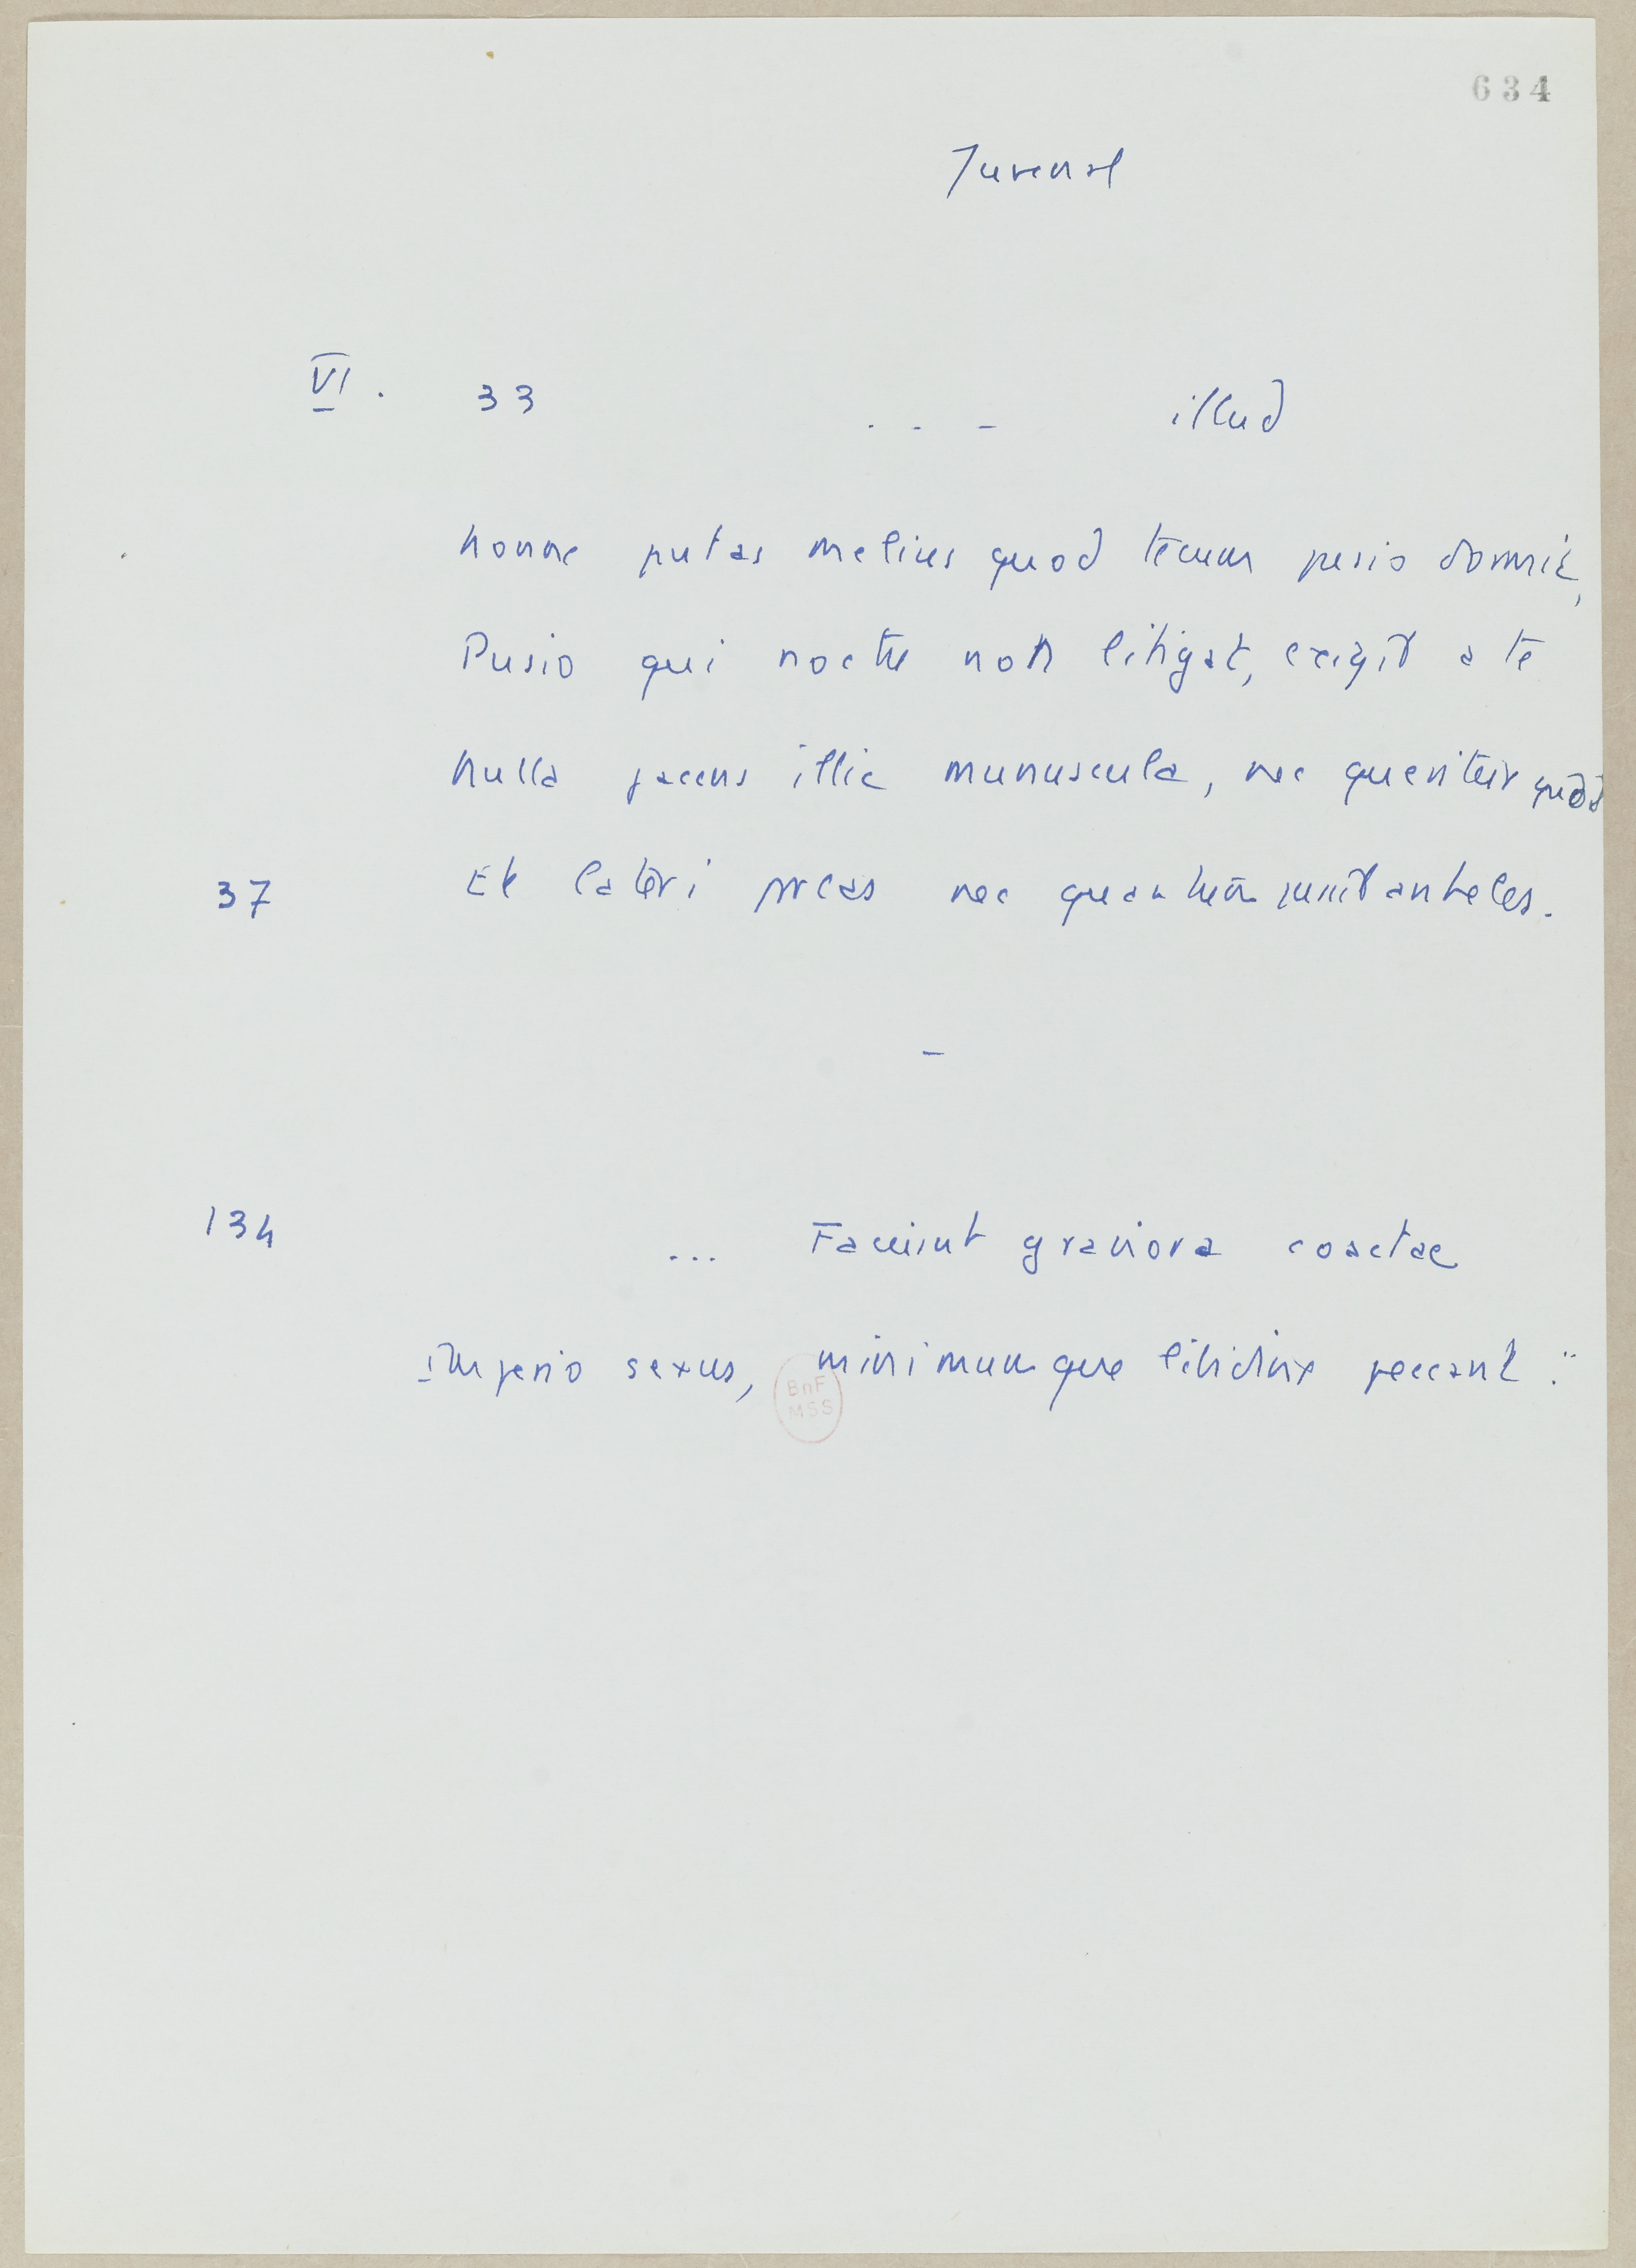 634
Juvenal
VI. 33 . . - illud
nonne putas melius quod tecum pusio dormit,
Pusio qui noctu non litigat, exigit a te
Nulla jacens illic munuscula, nec queritur quod
37 Et lateri parcas nec quantum jussit anheles.
-
134 ... Faciunt graviora coactae
Imperio sexus, minimumque libidine peccant :
BnF
MSS